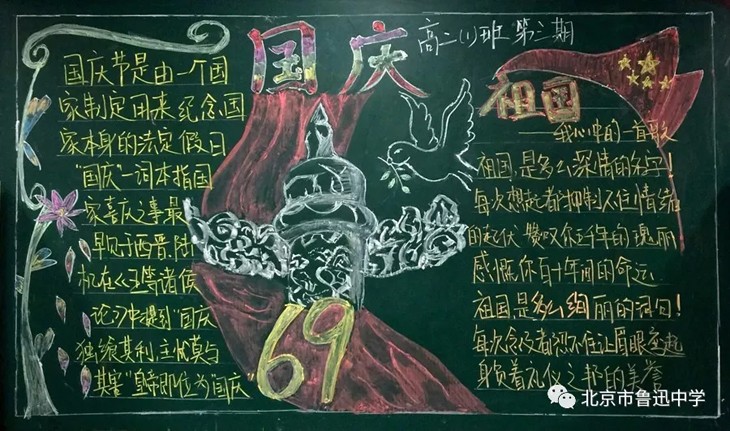 国庆
高二(1)班 第三期
国庆节是由一个国
家制定用来纪念国
家本身的法定假日
"国庆"一词本指国
家喜庆之事最
早见于西晋.陆
机在《五等诸侯
论》中提到"国庆
独飨其利,主忧莫与
其害"皇帝即位为"国庆"
69
祖国
——我心中的一首歌
祖国,是多么深情的名字!
每次想起都抑制不住情绪
的起伏 赞叹你五千年的瑰丽
感慨你百十年间的命运
祖国是多么绚丽的词句!
每次念及都忍不住让眉眼
身负着礼仪之邦的美誉
北京市鲁迅中学